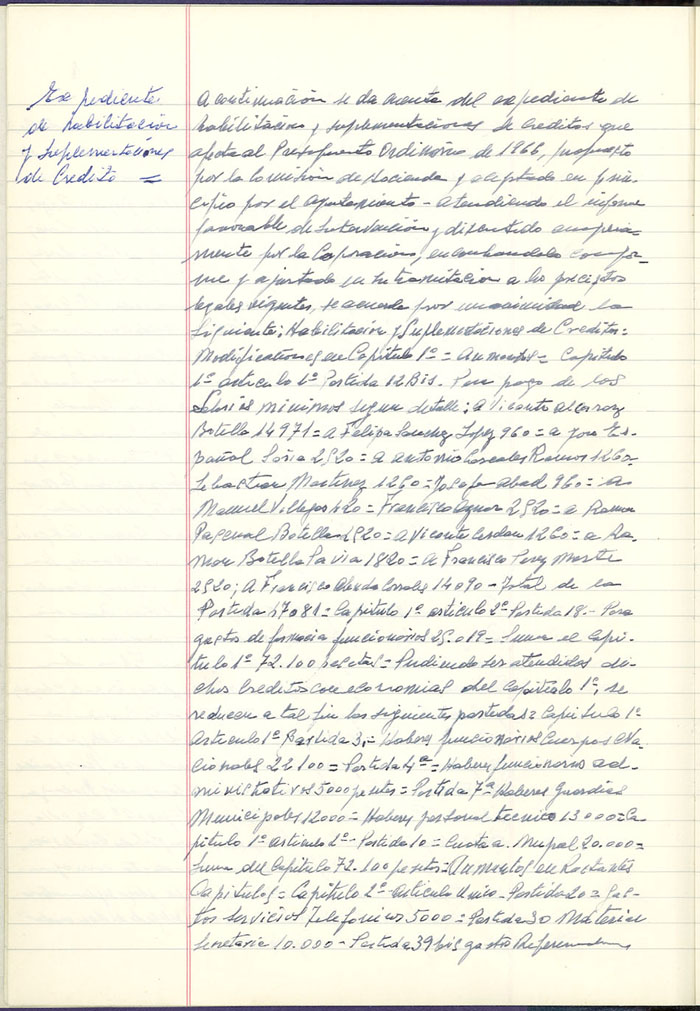 Expedientes
de habilitación
y Suplementaciones
de Credito =
A continuación se da cuenta del expediente de
habilitación y suplementaciones de Creditos que
afecta al Presupuesto Ordinario de 1966, propuesto
por la Comisión de Hacienda y aceptado en prin-
cipio por el Ayuntamiento - Atendiendo el informe
favorable de Intervención y discutido amplia-
mente por la Corporación, encontrandolo confor-
me y ajustado en su tramitacion a los preceptos
legales vigentes, se acuerda por unanimidad lo
siguiente; Habilitación y Suplementaciones de Creditos:
Modificationes en Capitulo 1º = Aumentos = Capitulo
1º articulo 1º Partida 12 Bis. Para pago de los
Salarios minimos segun detalle; a Vicente
Botella 14971 = a Felipa Sanchez Lopez 960 = a Jose Es-
pañol Soria 2520 = a Antonio Ramos 1260 =
Sebastian Martinez 1260 = Josefa Abad 960 = a
Manuel Villegas 420 = Francisco 2520 = a Ramon
Pascual Botella 2520 = a Vicente 1260 = a Ra-
mon Botella Pavia 1820 = a Francisco Perez
2520; a Francisco 14090 - Total de la
Partida 47081 = Capitulo 1º articulo 2º Partida 18 - Para
gastos de farmacia funcionarios 25.019 = Suma el Capi-
tulo 1º 72.100 pesetas = Pudiendo ser atendidos di-
chos Creditos con economias del Capitulo 1º, se
reducen a tal fin las siguientes partidas = Capitulo 1º
Articulo 1º Partida 3ª = Haberes funcionarios Cuerpos Na-
cionales 22100 = Partida 4ª = Haberes funcionarios ad-
ministrativos 5000 pesetas = Partida 7ª Haberes Guardias
Municipales 12000 = Haberes personal tecnico 13000 = Ca-
pitulo 1º articulo 2º - Partida 10 = Cuota a. Mupal 20.000 =
Suma del Capitulo 72.100 pesetas = Aumentos en Restantes
Capitulos = Capitulo 2º articulo Unico - Partida 20 = Gas-
tos servicios Telefonicos 5000 = Partida 30 Material
Secretaria 10.000 - Partida 39 bis gastos Referendum